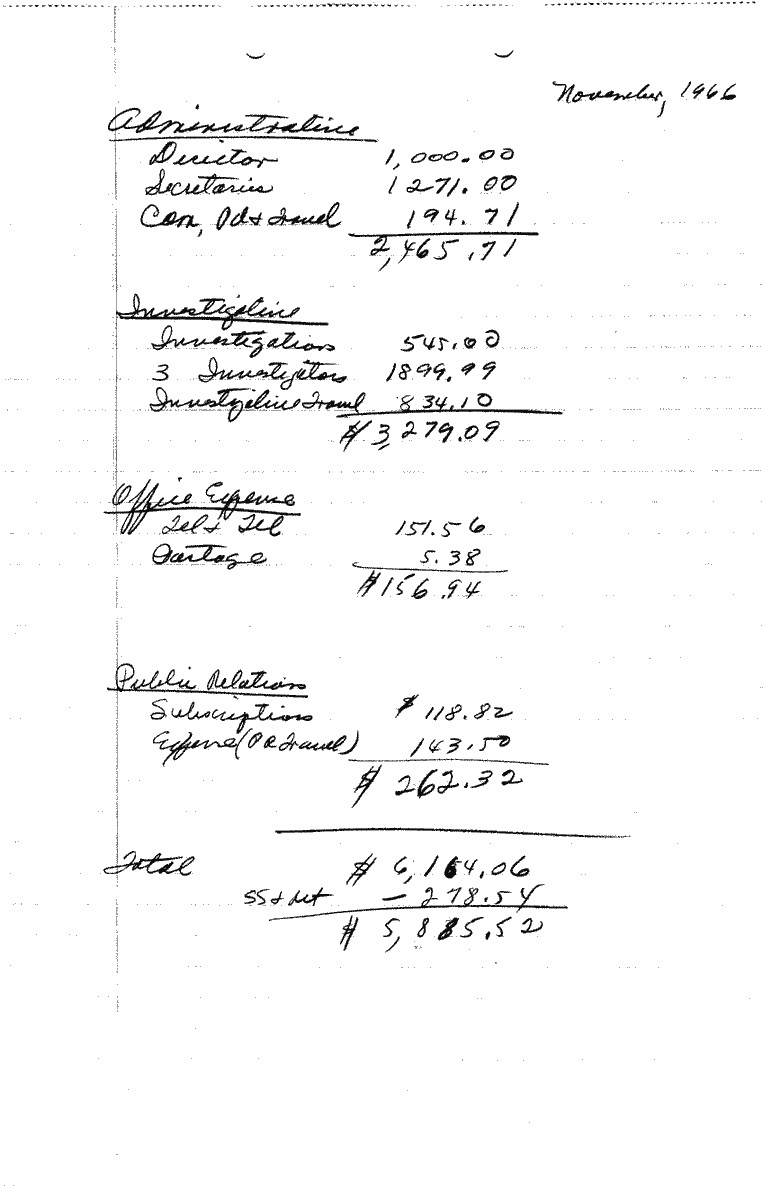 November, 1966
Administrative
Director 1,000.00
Secretaries 1271.00
Com, Pd & Travel 194.71
2,465.71
Investigative
Investigations 545.00
3 Investigators 1899.99
Investigative Travel 834.10
$ 3,279.09
Office Expense
Tel & Tel 151.56
Postage 5.38
$156.94
Public Relations
Subscriptions $ 118.82
Expense (PR Travel) 143.50
$ 262.32
Total $ 6,164.06
SS & Ret - 278.54
$ 5,885.52